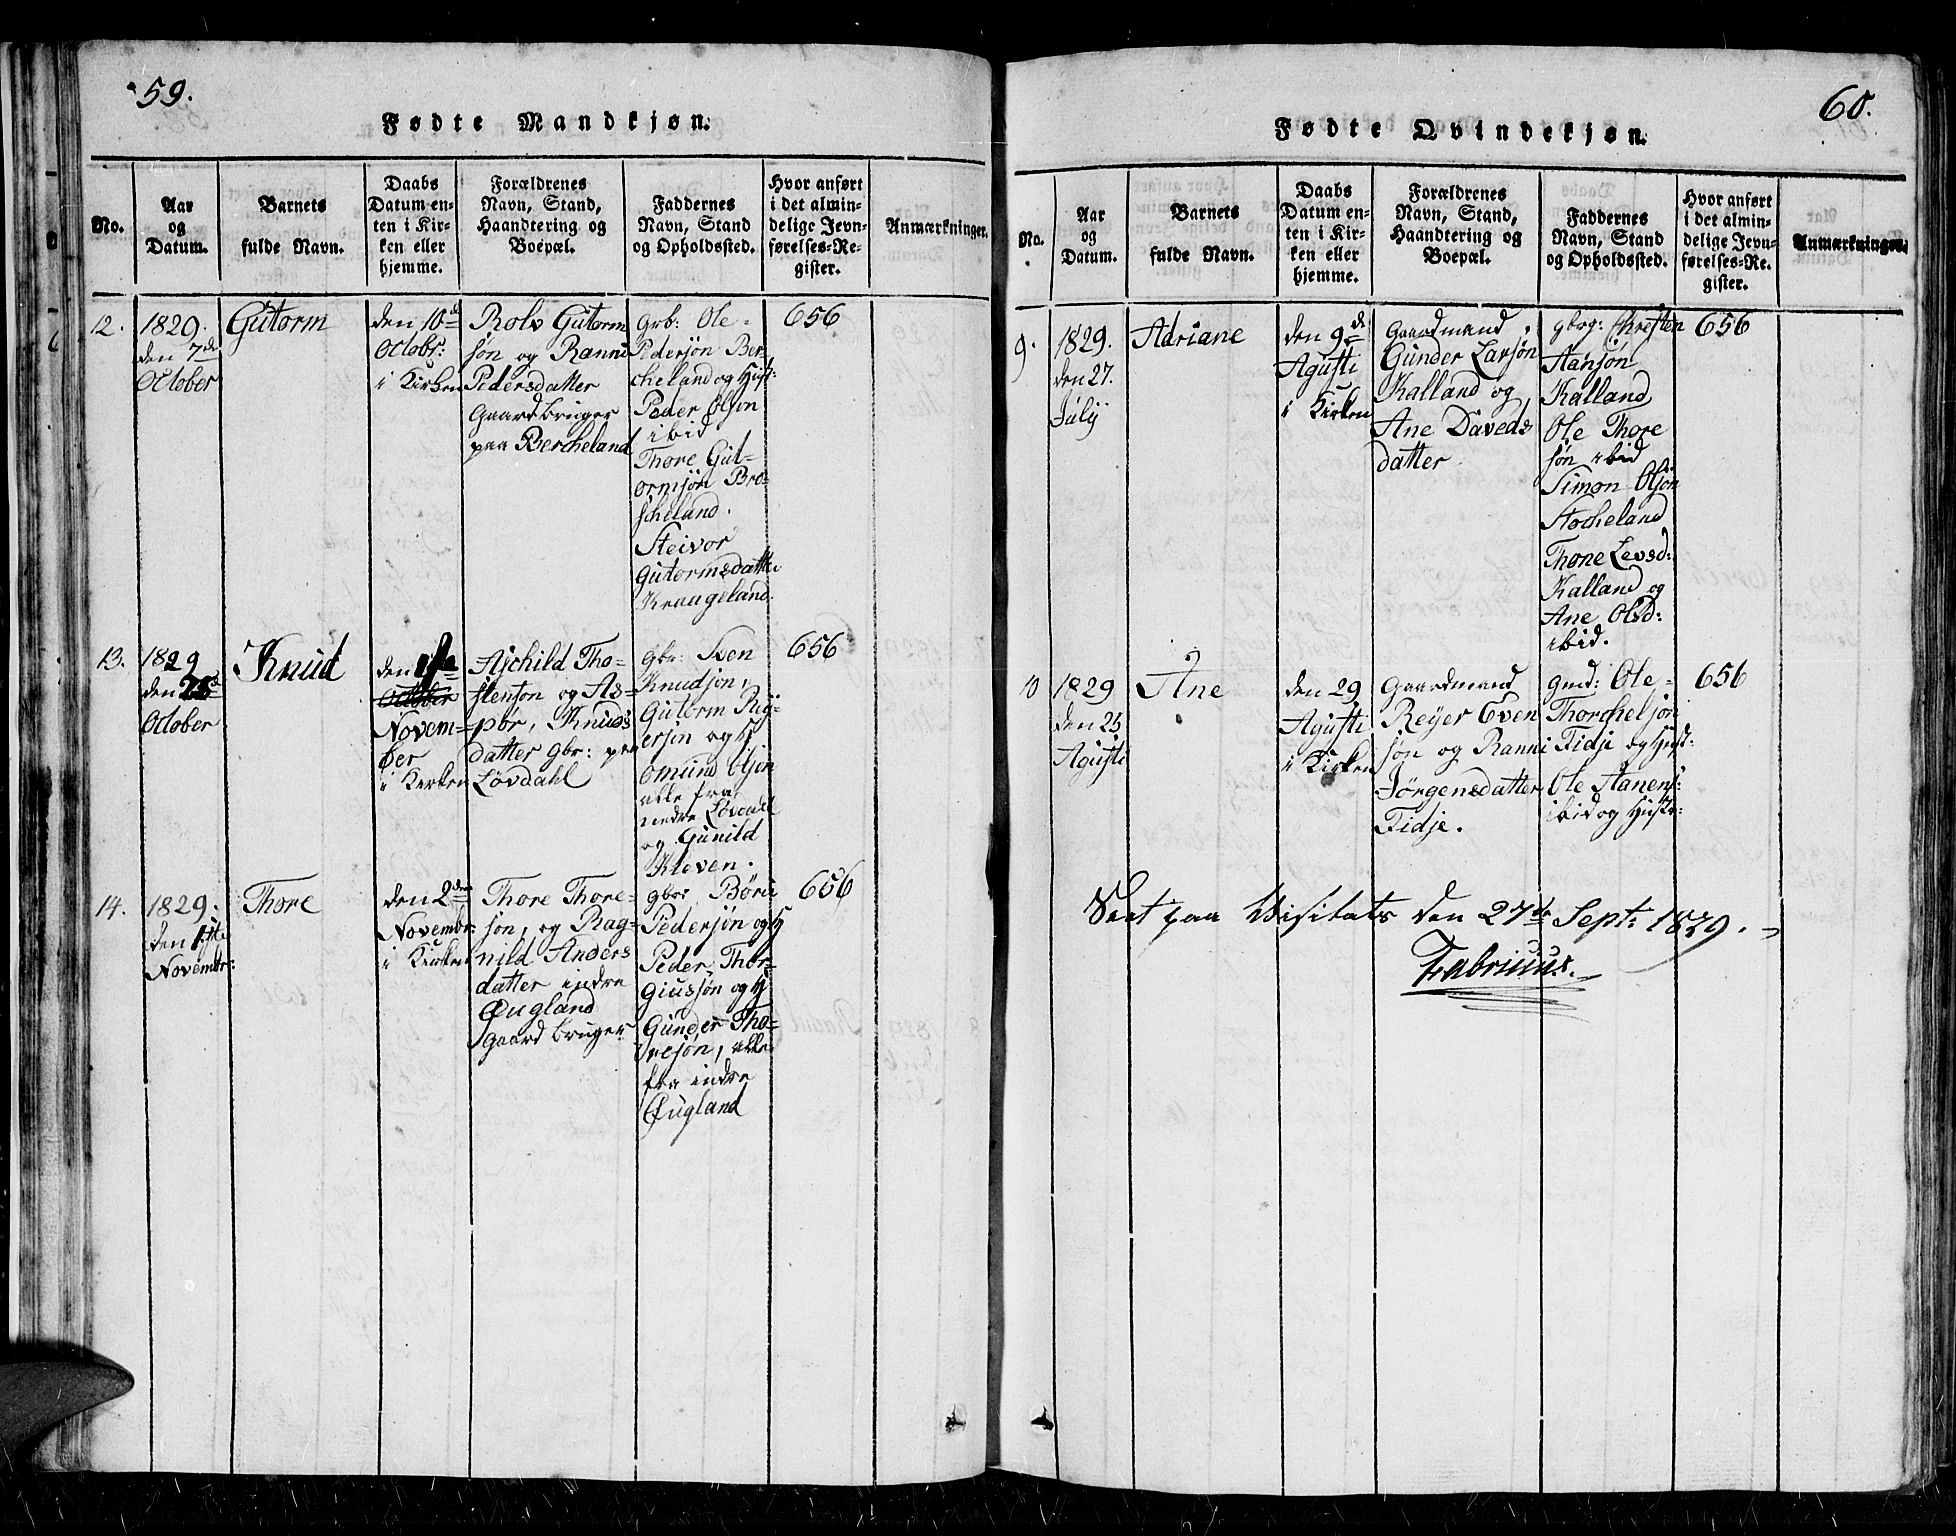 59.
Fødte Mandkjøn.
No.
Aar
og
Datum.
Barnets
fulde Navn.
Daabs
Datum en-
ten i Kir-
ken eller
hjemme.
Forældrenes
Navn, Stand,
Haandtering og
Boepæl.
Faddernes
Navn, Stand
og Opholdssted.
Hvor anført
i det almin-
delige Jevn-
førelses-Re-
gister.
Anmærkninger.
12.
1829.
den 7de
October
Gutorm
den 10de
Octobr:
i Kirken
Rolv Gutorm
søn og Ranni
Pedersdatter
Gaardbruger
paa Bercheland
Grb: Ole-
Pedersøn Ber-
cheland og Hust:
Peder Olson
ibid
Thore Gut-
ormsøn Bro-
scheland.
Steivor
Gutormsdatte
Kraageland.
656
13.
1829
den 25d
October
Knud
den
October
Novem-
ber
i Kirken
Aschild Tho-
stenson og As-
pør, Knuds
datter gbr: paa
Løvdahl
gbr: Sven
Knudsøn,
Gutorm Rig-
ersøn og H
Omund Olsen
alle fra
nedre Løvdal
og Gunild
Kleven.
656
14.
1829.
den 1ste
Novembr:
Thore
den 2den
Novembr:
i Kirken
Thore Thore-
søn, og Rag-
nild Anders
datter indre
Øugland
gaardbruger
gbr. Børu
Pedersøn og H
Peder Thor-
Giussøn og H
Gunder Tho-
resøn, alle
fra indre
Øugland
656
60.
Fødte Qvindekjøn.
No.
Aar
og
Datum.
Barnets
fulde Navn.
Daabs
Datum en-
ten i Kir-
ken eller
hjemme.
Forældrenes
Navn, Stand,
Haandtering og
Boepæl.
Faddernes
Navn, Stand
og Opholdssted.
Hvor anført
i det almin-
delige Jevn-
førelses-Re-
gister.
Anmærkninger.
9.
1829.
den 27.
Julÿ
Adriane
den 9de
Agusti
i Kirken
Gaardmand
Gunder Larsøn
Kalland og
Ane Daveds
datter
gbrg: Chresten
Aansøn
Kalland
Ole Thore
søn ibid
Simon Olson
Stocheland
Thone Levsd:
Kalland og
Ane Olsd:
ibid.
656
10
1829
den 23
Agusti
Ane
den 29
Agusti
i Kirken
Gaardmand
Reÿer Even
søn og Ranni
Jørgensdatter
Fidje.
gmd: Ole-
Thorchelsøn
Fidje og Hust:
Ole Aanens:
ibid og Hustr:
656
Seet paa Visitats den 27de Sept: 1829.
Fabricius.